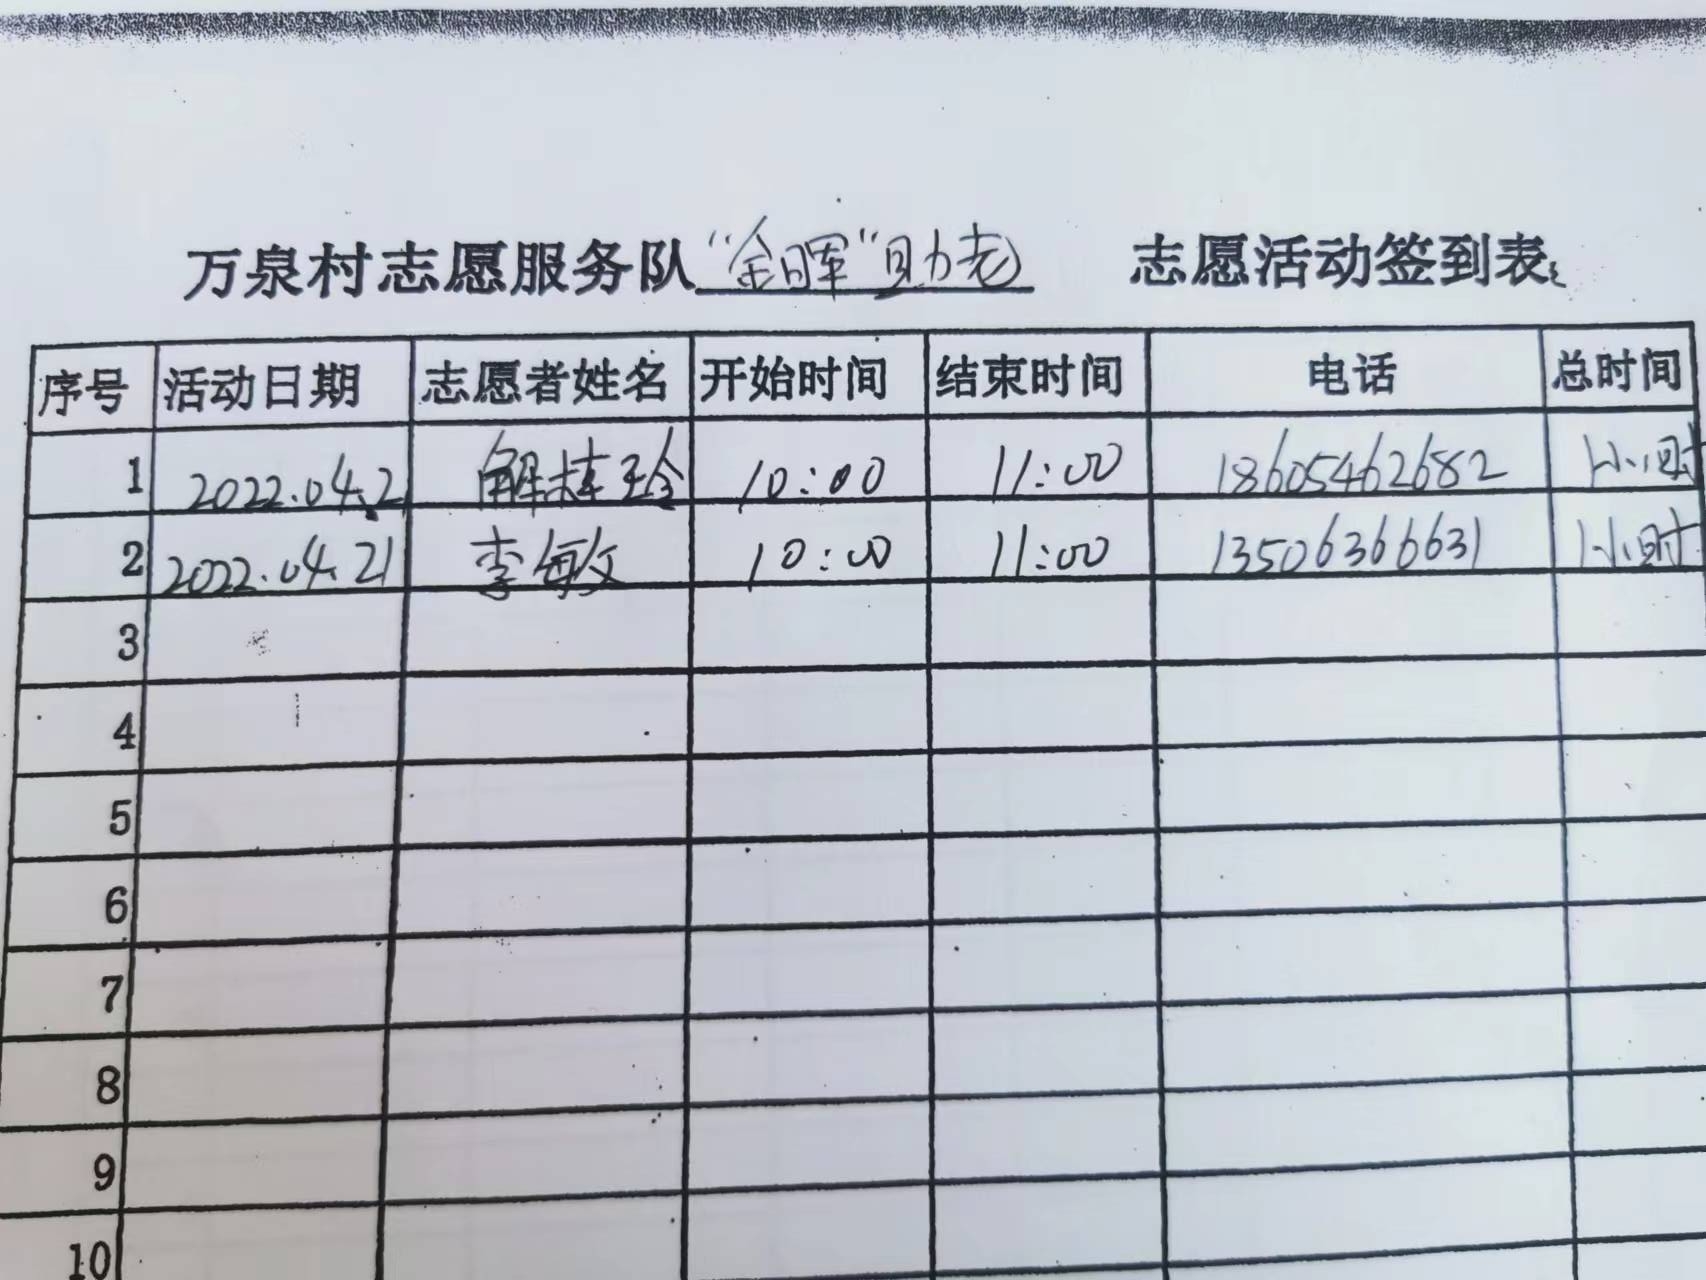 万泉村志愿服务队“金晖”助老 志愿活动签到表
序号 活动日期 志愿者姓名 开始时间 结束时间 电话 总时间
1 2022.04.2 解 玲 10:00 11:00 18605462682 1小时
2 2022.04.21 李敏文 10:00 11:00 13506366631 1小时
3
4
5
6
7
8
9
10